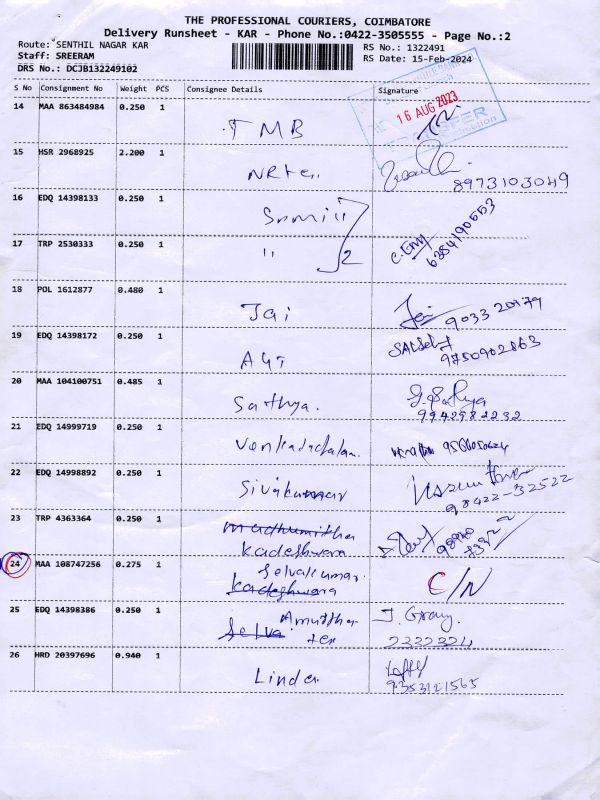 THE PROFESSIONAL COURIERS, COIMBATORE
Delivery Runsheet - KAR - Phone No.:0422-3505555 - Page No.:2
Route: SENTHIL NAGAR KAR RS No.: 1322491
Staff: SREERAM RS Date: 15-Feb-2024
DRS No.: DCJB132249102
S No Consignment No Weight PCS Consignee Details Signature
16 AUG 2023
14 MAA 863484984 0.250 1
TMB
15 HSR 2968925 2.200 1
8973103049
16 EDQ 14398133 0.250 1
17 TRP 2530333 0.250 1
" 2
18 POL 1612877 0.480 1
Jai
19 EDQ 14398172 0.250 1
9750902863
20 MAA 104100751 0.485 1
Sathya.
9942982232
21 EDQ 14999719 0.250 1
Venkadachalam.
22 EDQ 14998892 0.250 1
Sivakumar
98422-32522
23 TRP 4363364 0.250 1
madhumitha
Kadeshwara
24 MAA 108747256 0.275 1
Selvakumar
Kadeshwara C/N
25 EDQ 14398386 0.250 1
Amuttha
Selva tex
26 HRD 20397696 0.940 1
Linda
9353121565